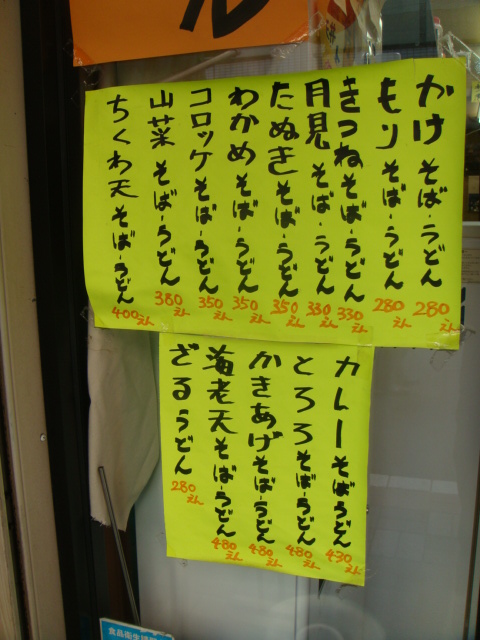 かけ そば・うどん 280えん
もり そば・うどん 280えん
きつねそば・うどん 330えん
月見 そば・うどん 330えん
たぬきそば・うどん 350えん
わかめ そば・うどん 350えん
コロッケそば・うどん 350えん
山菜 そば・うどん 380えん
ちくわ天そば・うどん 400えん
カレーそばうどん 430えん
とろろそば・うどん 480えん
かきあげそば・うどん 480えん
海老天そば・うどん 480えん
ざるうどん 280えん